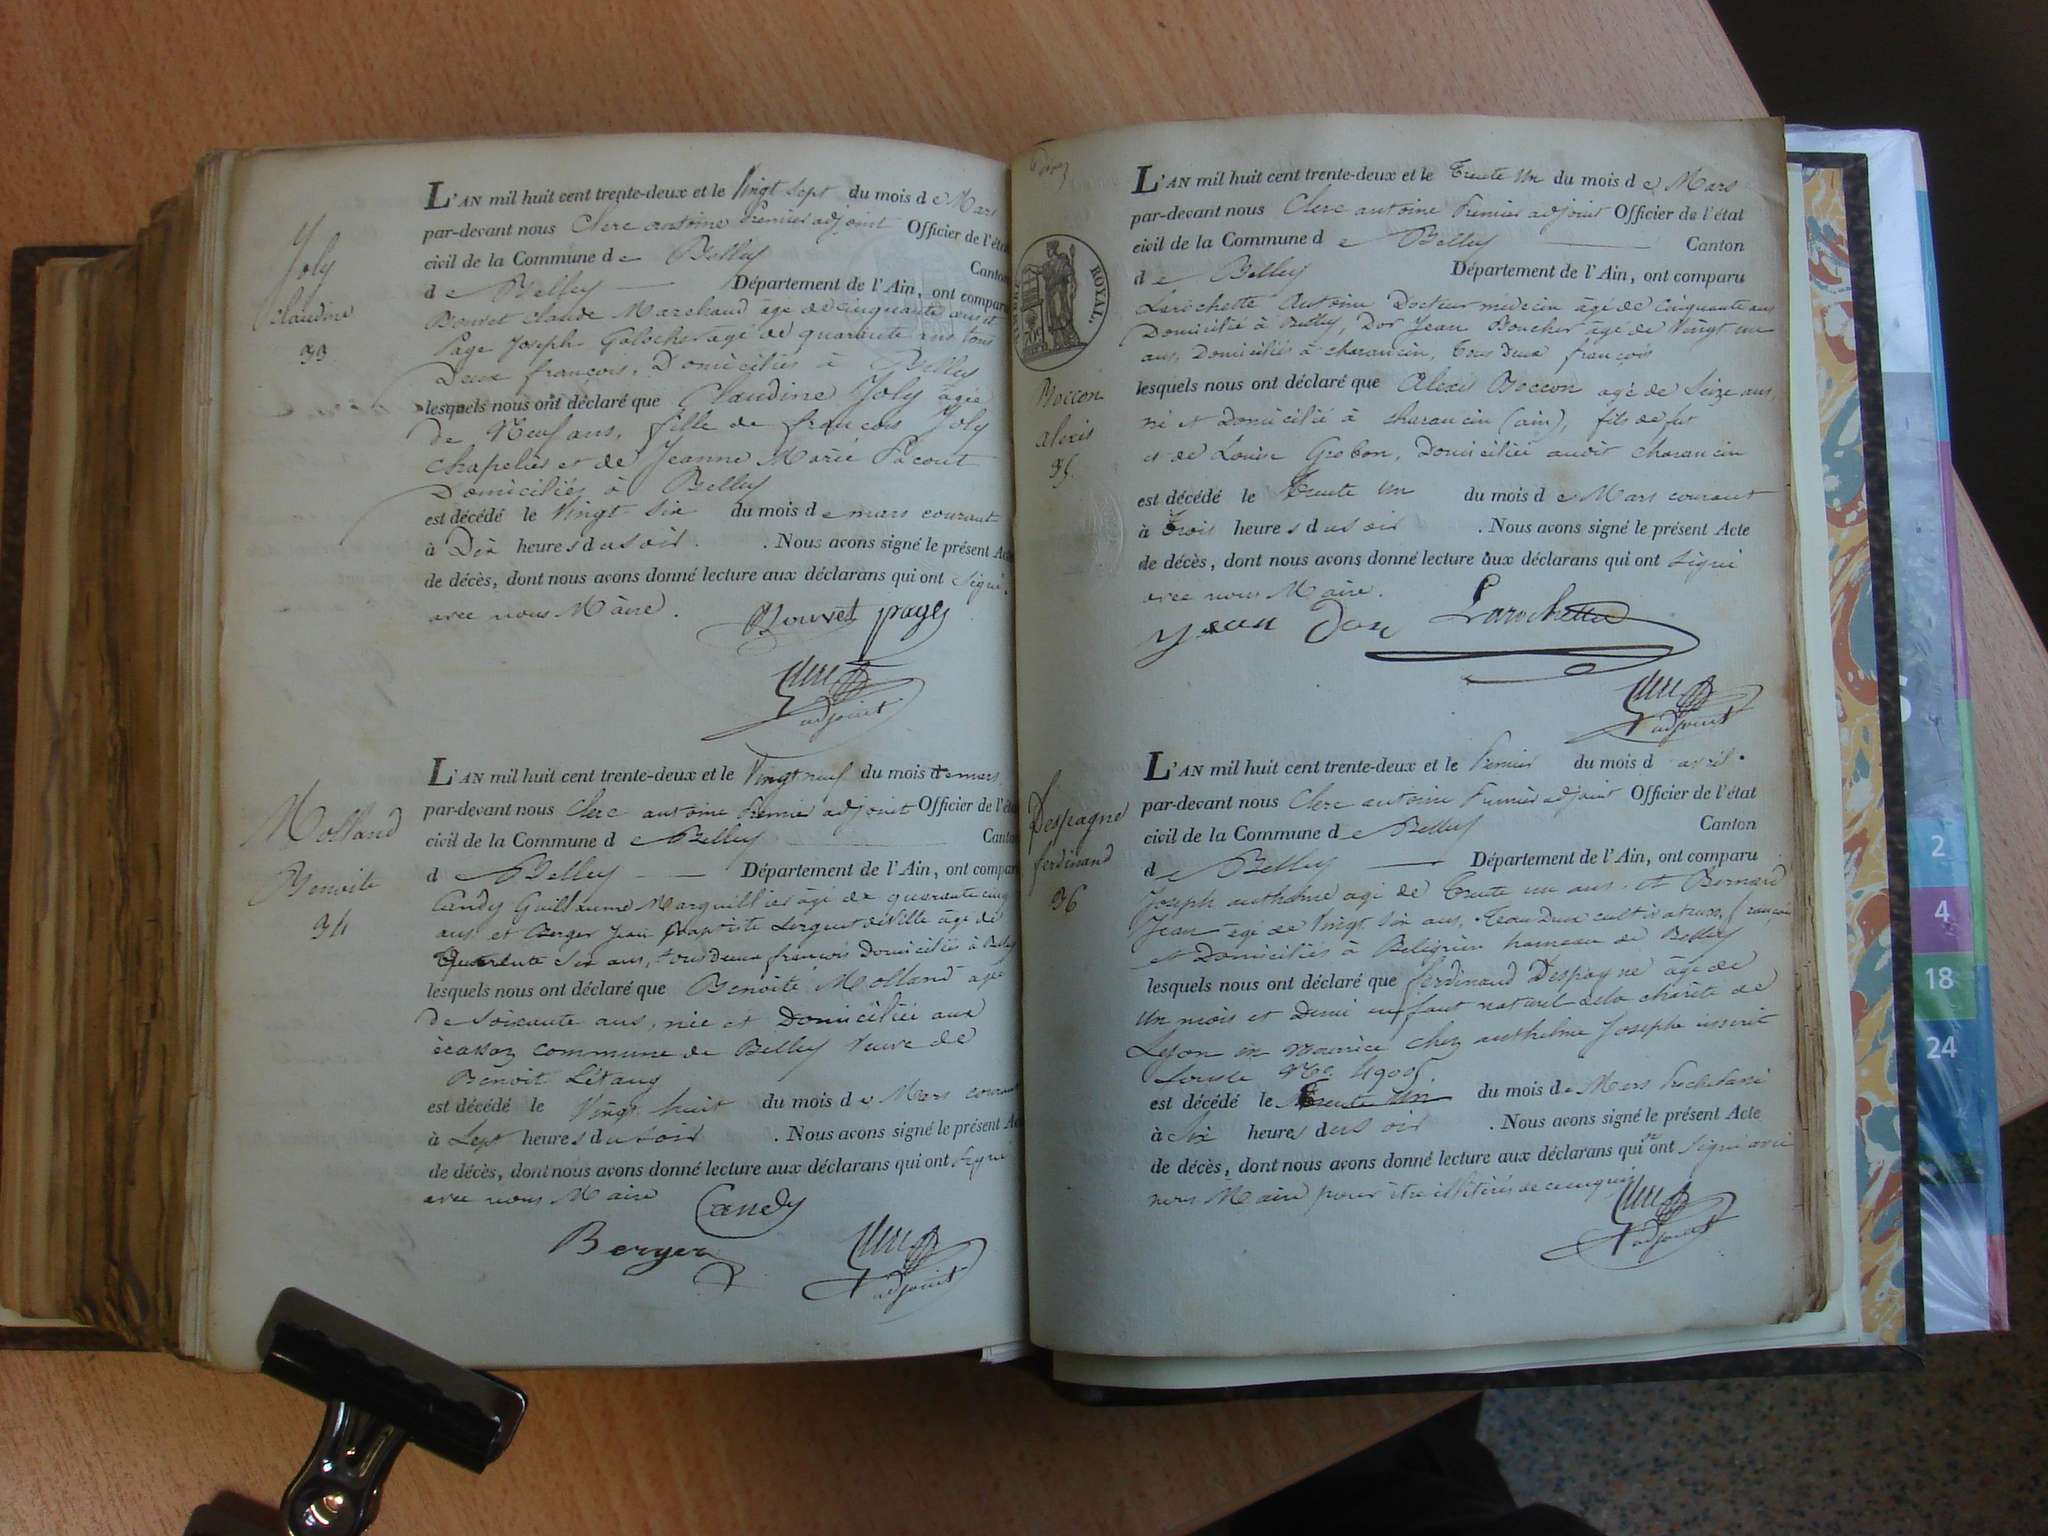 Joly
Claudine
33
L'AN mil huit cent trente-deux et le Vingt Sept du mois de Mars
par-devant nous Clerc antoine Premier adjoint Officier de l'état
civil de la Commune de Belley Canton
de Belley Département de l'Ain, ont comparu
Bouvet Claude Marchand âgé de cinquante ans et
Page Joseph Galocher agé de quarante ans tous
Deux françois, Domiciliés à Belley
lesquels nous ont déclaré que Claudine Joly âgée
de Neuf ans, fille de françois Joly
chapelier et de Jeanne Marie Pacout
Domiciliés à Belley
est décédé le Vingt Six du mois de mars courant
à Dix heures du soir. . Nous avons signé le présent Acte
de décès, dont nous avons donné lecture aux déclarans qui ont signé
avec nous Maire.
Bouvet page
Clerc
adjoint
Molland
Benoite
34
L'AN mil huit cent trente-deux et le Vingt neuf du mois de mars
par-devant nous Clerc antoine Premier adjoint Officier de l'état
civil de la Commune de Belley Canton
de Belley Département de l'Ain, ont comparu
Candy Guillaume Marguillier âgé de quarante cinq
ans et Berger Jean Baptiste Sergent de Ville âgé de
six ans, tous deux françois Domiciliés à Belley
lesquels nous ont déclaré que Benoite Molland agée
de soixante ans, née et Domiciliée aux
écassaz commune de Belley veuve de
Benoit Létang
est décédé le Vingt huit du mois de Mars courant
à Sept heures du soir . Nous avons signé le présent Acte
de décès, dont nous avons donné lecture aux déclarans qui ont signé
avec nous Maire
Candy
Berger
Clerc
adjoint
TIMBRE ROYAL.
Boccon
alexis
35.
L'AN mil huit cent trente-deux et le Trente Un du mois de Mars
par-devant nous Clerc antoine Premier adjoint Officier de l'état
civil de la Commune de Belley Canton
de Belley Département de l'Ain, ont comparu
Larochette Antoine Docteur médecin âgé de cinquante ans
Domicilié à Belley, Dor Jean Boucher âgé de Vingt un
ans, Domiciliés à charancin, tous deux françois
lesquels nous ont déclaré que Alexis Boccon agé de Seize ans,
né et Domicilié à charancin (ain), fils de fut
et de Louise Grobon, Domiciliée audit charancin
est décédé le Trente Un du mois de Mars courant
à Trois heures du soir . Nous avons signé le présent Acte
de décès, dont nous avons donné lecture aux déclarans qui ont signé
avec nous Maire.
jean Dor Larochette
Clerc
adjoint
Despagne
ferdinand
36
L'AN mil huit cent trente-deux et le Premier du mois d avril.
par-devant nous Clerc antoine Premier adjoint Officier de l'état
civil de la Commune de Belley Canton
de Belley Département de l'Ain, ont comparu
Joseph anthelme agé de Trente un ans et Bernard
Jean âgé de Vingt Six ans, Tous Deux cultivateurs, françois
et Domiciliés à Beligneu hameau de Belley
lesquels nous ont déclaré que ferdinand Despagne âgé de
un mois et Demi enfant naturel de la charité de
Lyon en nourrice chez anthelme Joseph inscrit
sous le No. 4905
est décédé le Trente Un du mois de Mars
à Six heures du soir . Nous avons signé le présent Acte
de décès, dont nous avons donné lecture aux déclarans qui n'ont signé avec
nous Maire pour être illitérés de ce enquis
Clerc
adjoint
2
4
18
24